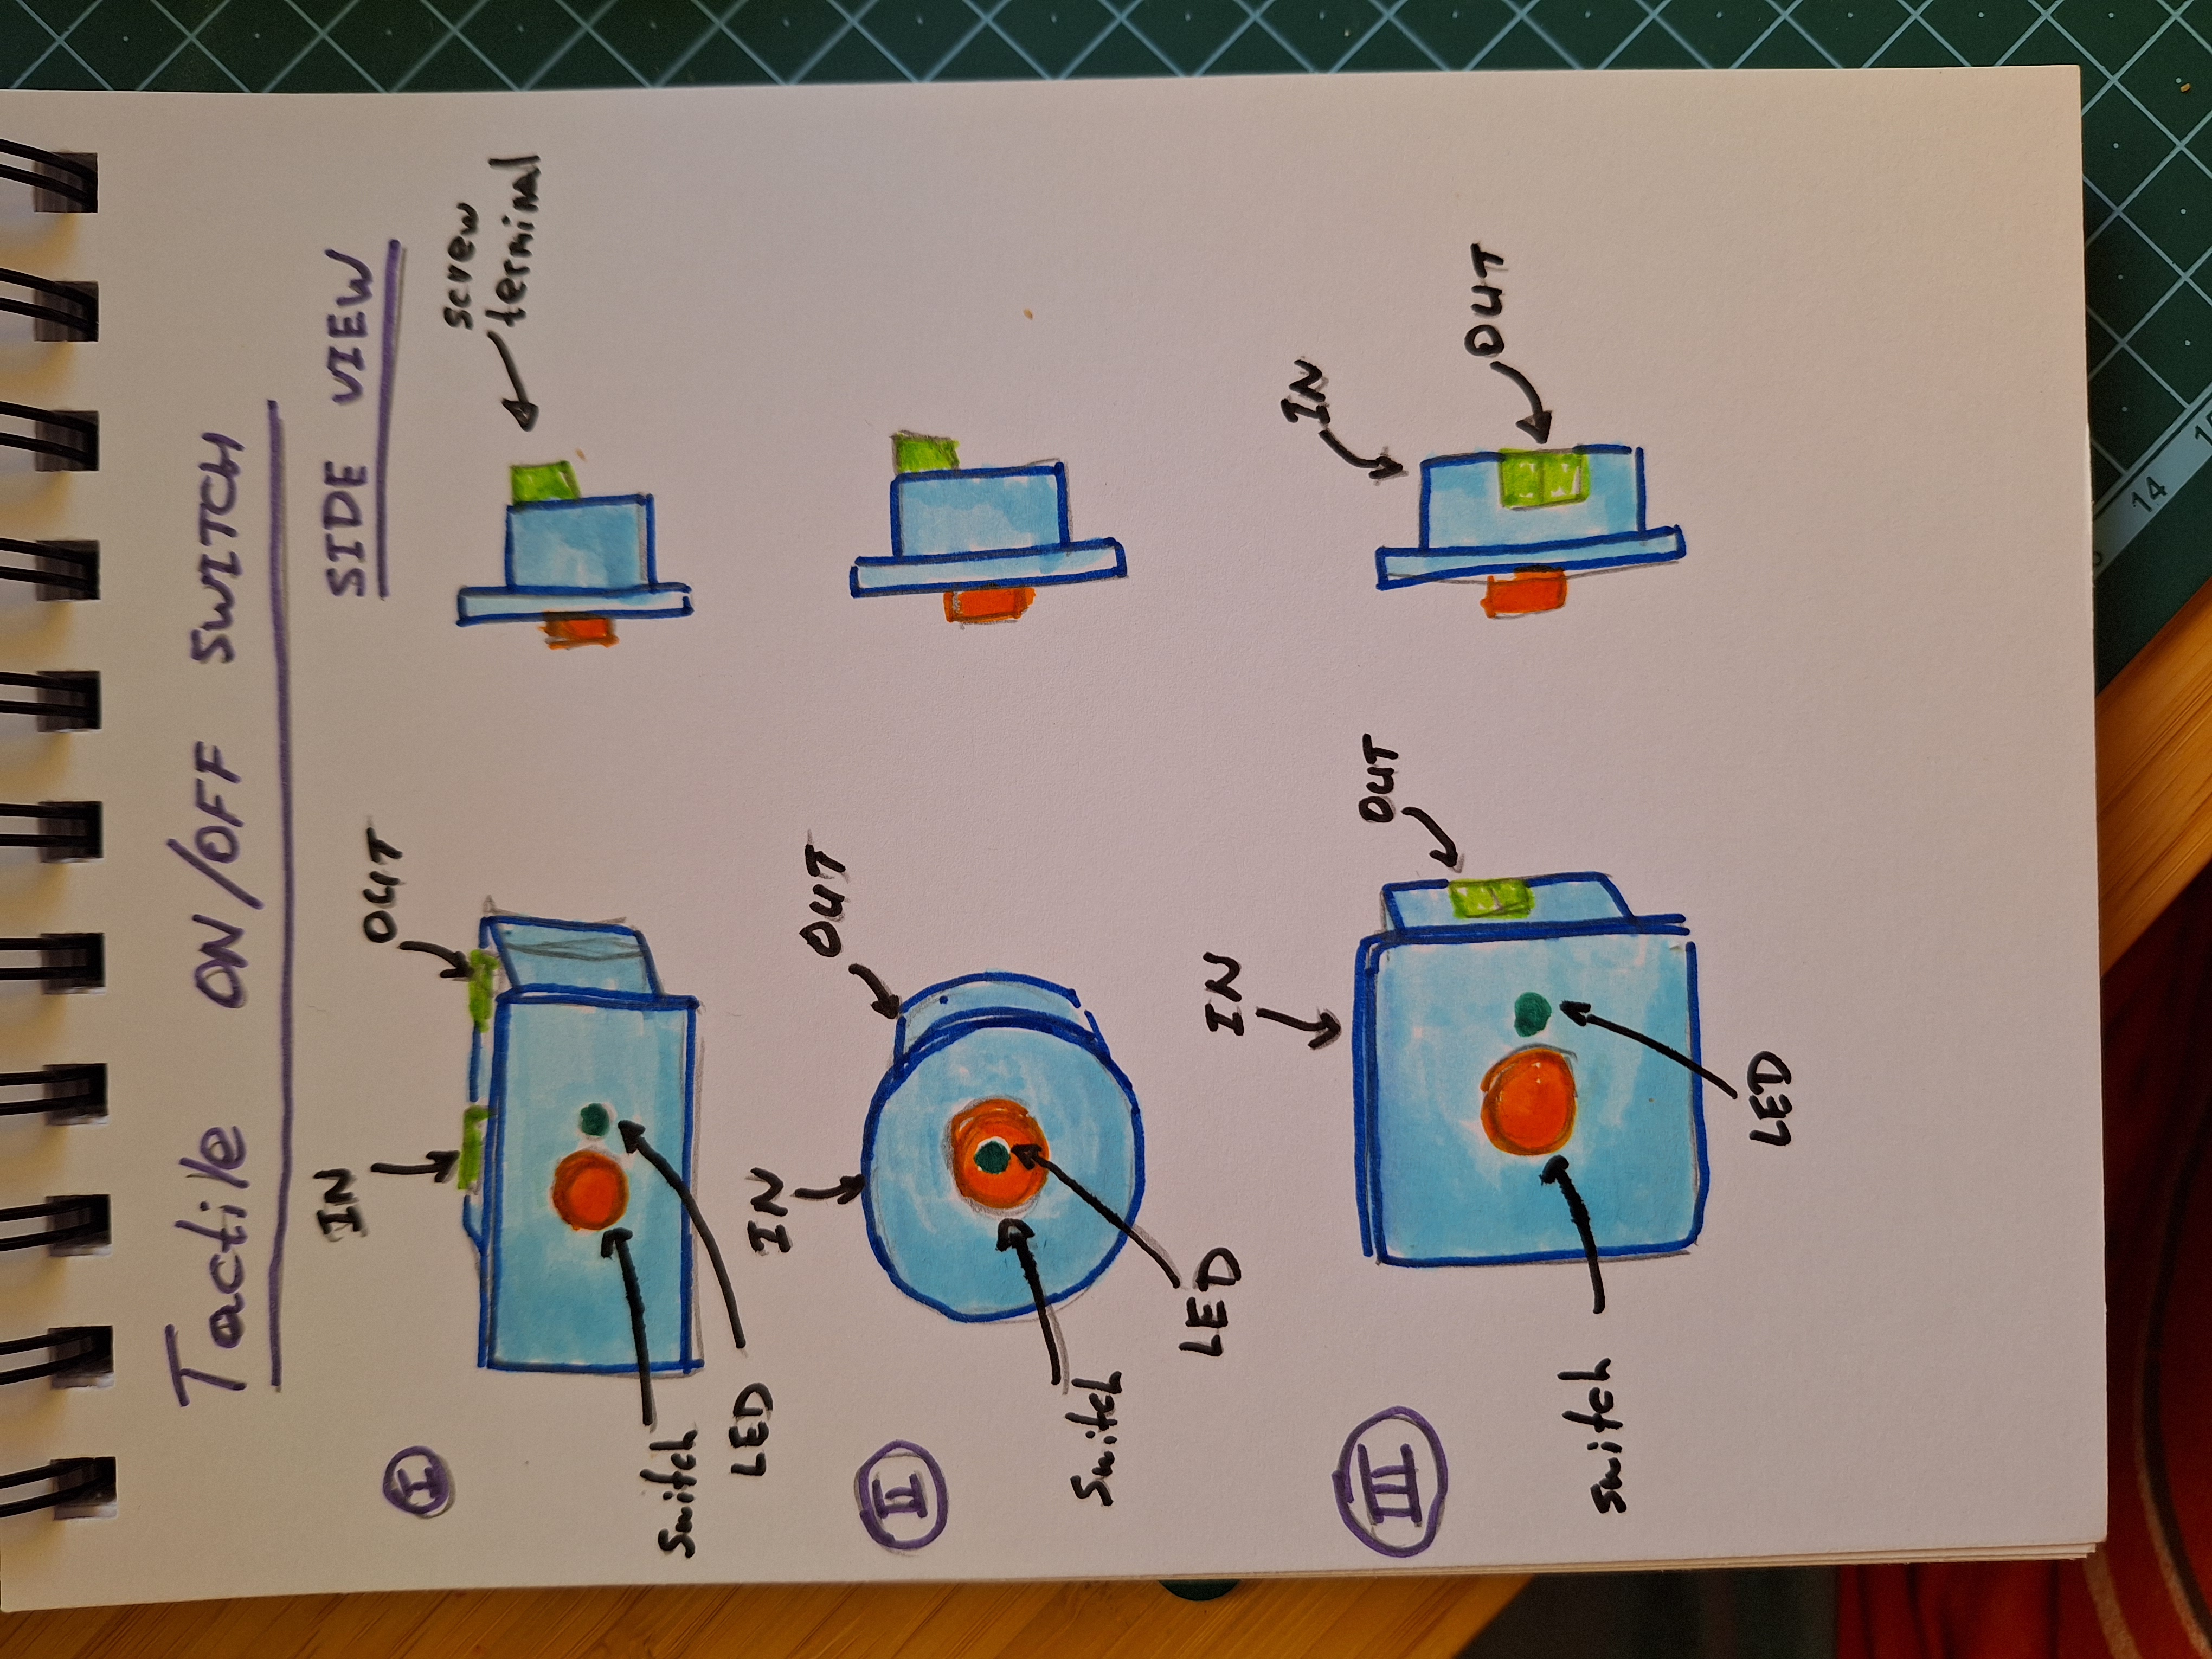 Tactile ON/OFF SWITCH
SIDE VIEW
I
IN
OUT
screw
terminal
Switch
LED
II
IN
OUT
Switch
LED
III
IN
OUT
switch
LED
IN
OUT
14